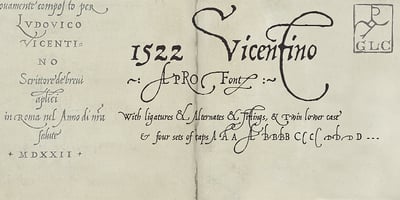 ouamente compos to per
LUDOVICO
VICENTI=
NO
Scrittore de brevi
aplici
in ROMA nel Anno di nra
salute
+ MDXXII +
1522 Vicentino
~: PRO Font :~
With ligatures & Alternates & Titlings, & Twin lower case
& four sets of caps A A A A B B B B C C C C D D D D ---
GLC